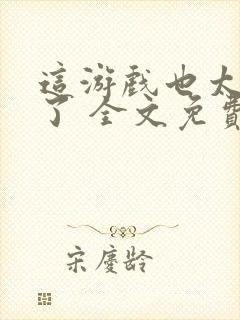 這游戲也太
了 全文免費
宋慶齡